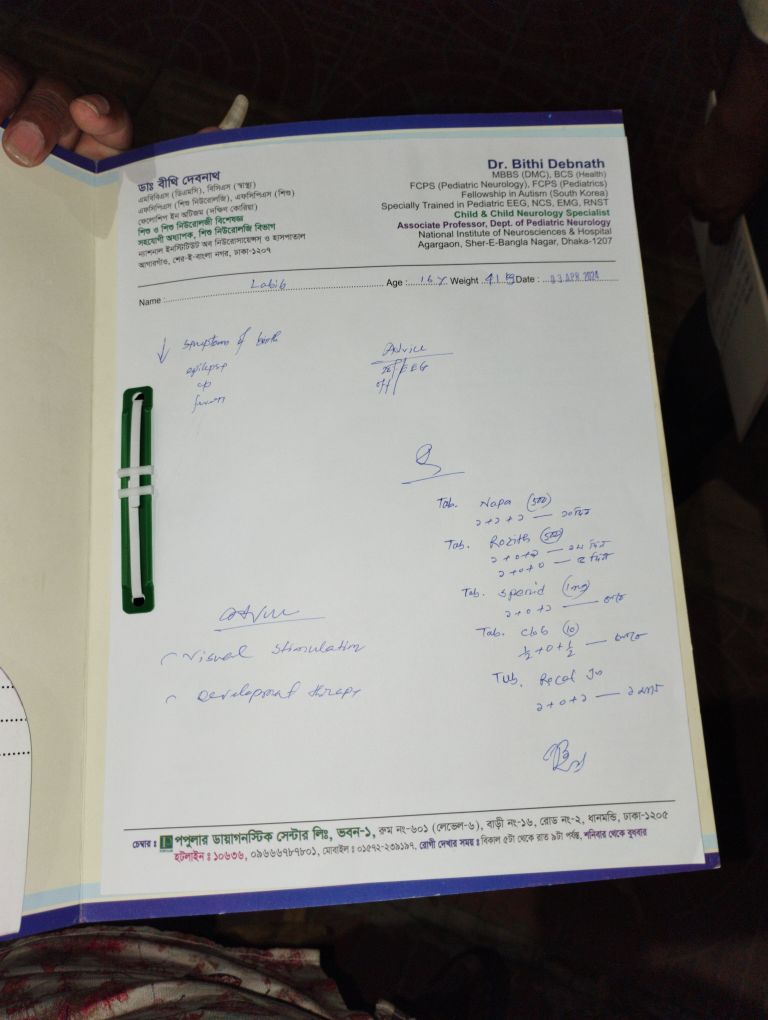 ডাঃ বীথি দেবনাথ
এমবিবিএস (ডিএমসি), বিসিএস (স্বাস্থ্য)
এফসিপিএস (শিশু নিউরোলজি), এফসিপিএস (শিশু)
ফেলোশিপ ইন অটিজম (দক্ষিণ কোরিয়া)
শিশু ও শিশু নিউরোলজী বিশেষজ্ঞ
সহযোগী অধ্যাপক, শিশু নিউরোলজি বিভাগ
ন্যাশনাল ইনস্টিটিউট অব নিউরোসায়েন্সেস ও হাসপাতাল
আগারগাঁও, শের-ই-বাংলা নগর, ঢাকা-১২০৭
Dr. Bithi Debnath
MBBS (DMC), BCS (Health)
FCPS (Pediatric Neurology), FCPS (Pediatrics)
Fellowship in Autism (South Korea)
Specially Trained in Pediatric EEG, NCS, EMG, RNST
Child & Child Neurology Specialist
Associate Professor, Dept. of Pediatric Neurology
National Institute of Neurosciences & Hospital
Agargaon, Sher-E-Bangla Nagar, Dhaka-1207
Name : Labib Age : 16 Y Weight : 41 kg Date : 03 APR 2024
symptoms of
epilepsy
cp
Advice
EEG
Tab. Napa (500)
১+১+১ —
Tab. Rozith (500)
১+০+০
Tab. Sperid (1mg)
১+০+১ —
Tab. Clob (10)
½+০+½ —
Tab. Recal
১+০+১ — ১ মাস
Advice
Visual Stimulation
Development therapy
চেম্বার : পপুলার ডায়াগনস্টিক সেন্টার লিঃ, ভবন-১, রুম নং-৬০১ (লেভেল-৬), বাড়ী নং-১৬, রোড নং-২, ধানমন্ডি, ঢাকা-১২০৫
হটলাইন : ১০৬৩৬, ০৯৬৬৬৭৮৭৮০১, মোবাইল : ০১৫৭২-২৩৯১৯৭, রোগী দেখার সময় : বিকাল ৫টা থেকে রাত ৯টা পর্যন্ত, শনিবার থেকে বুধবার